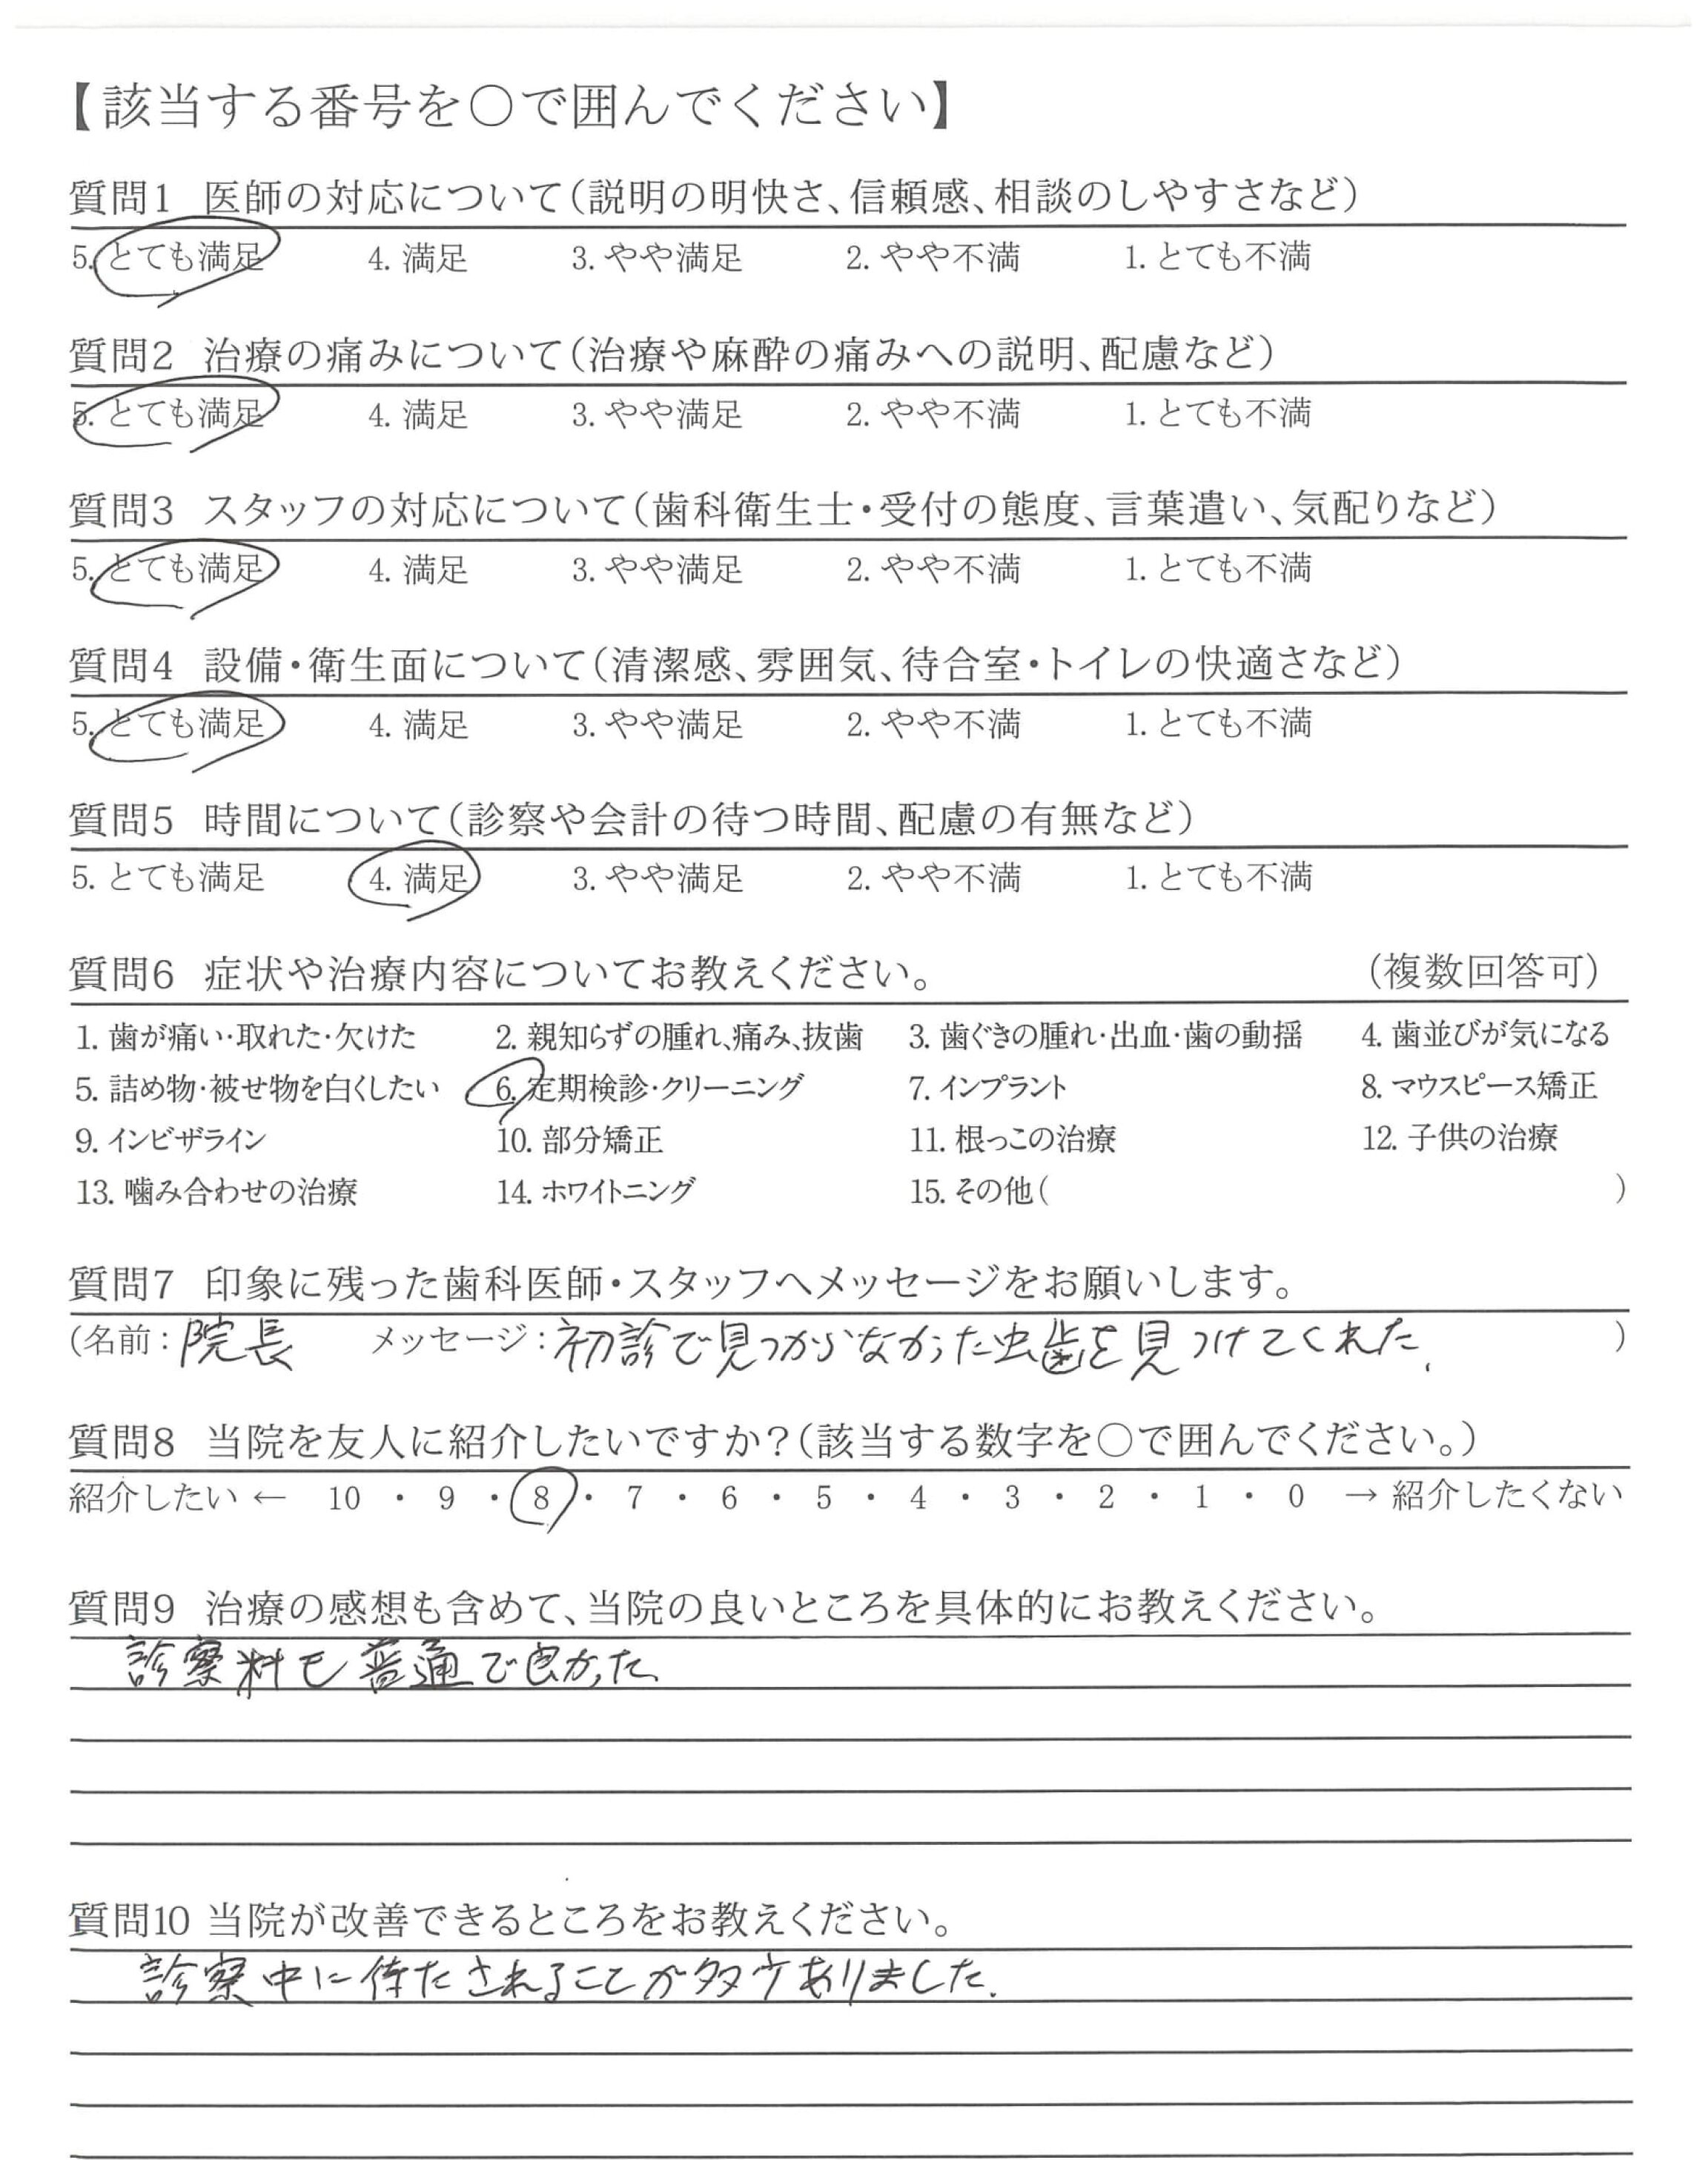 【該当する番号を○で囲んでください】
質問1 医師の対応について（説明の明快さ、信頼感、相談のしやすさなど）
5. とても満足 4. 満足 3. やや満足 2. やや不満 1. とても不満
質問2 治療の痛みについて（治療や麻酔の痛みへの説明、配慮など）
5. とても満足 4. 満足 3. やや満足 2. やや不満 1. とても不満
質問3 スタッフの対応について（歯科衛生士・受付の態度、言葉遣い、気配りなど）
5. とても満足 4. 満足 3. やや満足 2. やや不満 1. とても不満
質問4 設備・衛生面について（清潔感、雰囲気、待合室・トイレの快適さなど）
5. とても満足 4. 満足 3. やや満足 2. やや不満 1. とても不満
質問5 時間について（診察や会計の待つ時間、配慮の有無など）
5. とても満足 4. 満足 3. やや満足 2. やや不満 1. とても不満
質問6 症状や治療内容についてお教えください。 （複数回答可）
1. 歯が痛い・取れた・欠けた 2. 親知らずの腫れ、痛み、抜歯 3. 歯ぐきの腫れ・出血・歯の動揺 4. 歯並びが気になる
5. 詰め物・被せ物を白くしたい 6. 定期検診・クリーニング 7. インプラント 8. マウスピース矯正
9. インビザライン 10. 部分矯正 11. 根っこの治療 12. 子供の治療
13. 噛み合わせの治療 14. ホワイトニング 15. その他（ ）
質問7 印象に残った歯科医師・スタッフへメッセージをお願いします。
（名前：院長 メッセージ：初診で見つからなかった虫歯を見つけてくれた. ）
質問8 当院を友人に紹介したいですか？（該当する数字を○で囲んでください。）
紹介したい ← 10 ・ 9 ・ 8 ・ 7 ・ 6 ・ 5 ・ 4 ・ 3 ・ 2 ・ 1 ・ 0 → 紹介したくない
質問9 治療の感想も含めて、当院の良いところを具体的にお教えください。
診察料も普通で良かった
質問10 当院が改善できるところをお教えください。
診察中に待たされることが多々ありました.